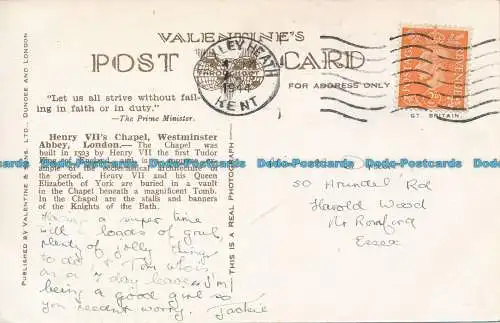 VALENTINE'S
POST CARD
FOR ADDRESS ONLY
LEY HEATH
1944
KENT
GT. BRITAIN.
"Let us all strive without fail-
ing in faith or in duty."
—The Prime Minister.
Henry VII's Chapel, Westminster
Abbey, London.—The Chapel was
built in 1503 by Henry VII the first Tudor
King of England and is a
ample of the ecclesiastical architecture of
the period. Henry VII and his Queen
Elizabeth of York are buried in a vault
in the Chapel beneath a magnificent Tomb.
In the Chapel are the stalls and banners
of the Knights of the Bath.
Having a super time
with loads of
plenty of jolly things
to do & Tom who's
on a 7 day leave. I'm
being a good girl so
you needn't worry. Jackie
PUBLISHED BY VALENTINE & SONS, LTD., DUNDEE AND LONDON
THIS IS A REAL PHOTOGRAPH
50 Arundel Rd
Harold Wood
Nr Romford
Essex
Dodo-Postcards Dodo-Postcards Dodo-Postcards Dodo-Postcards Dodo-Postcards